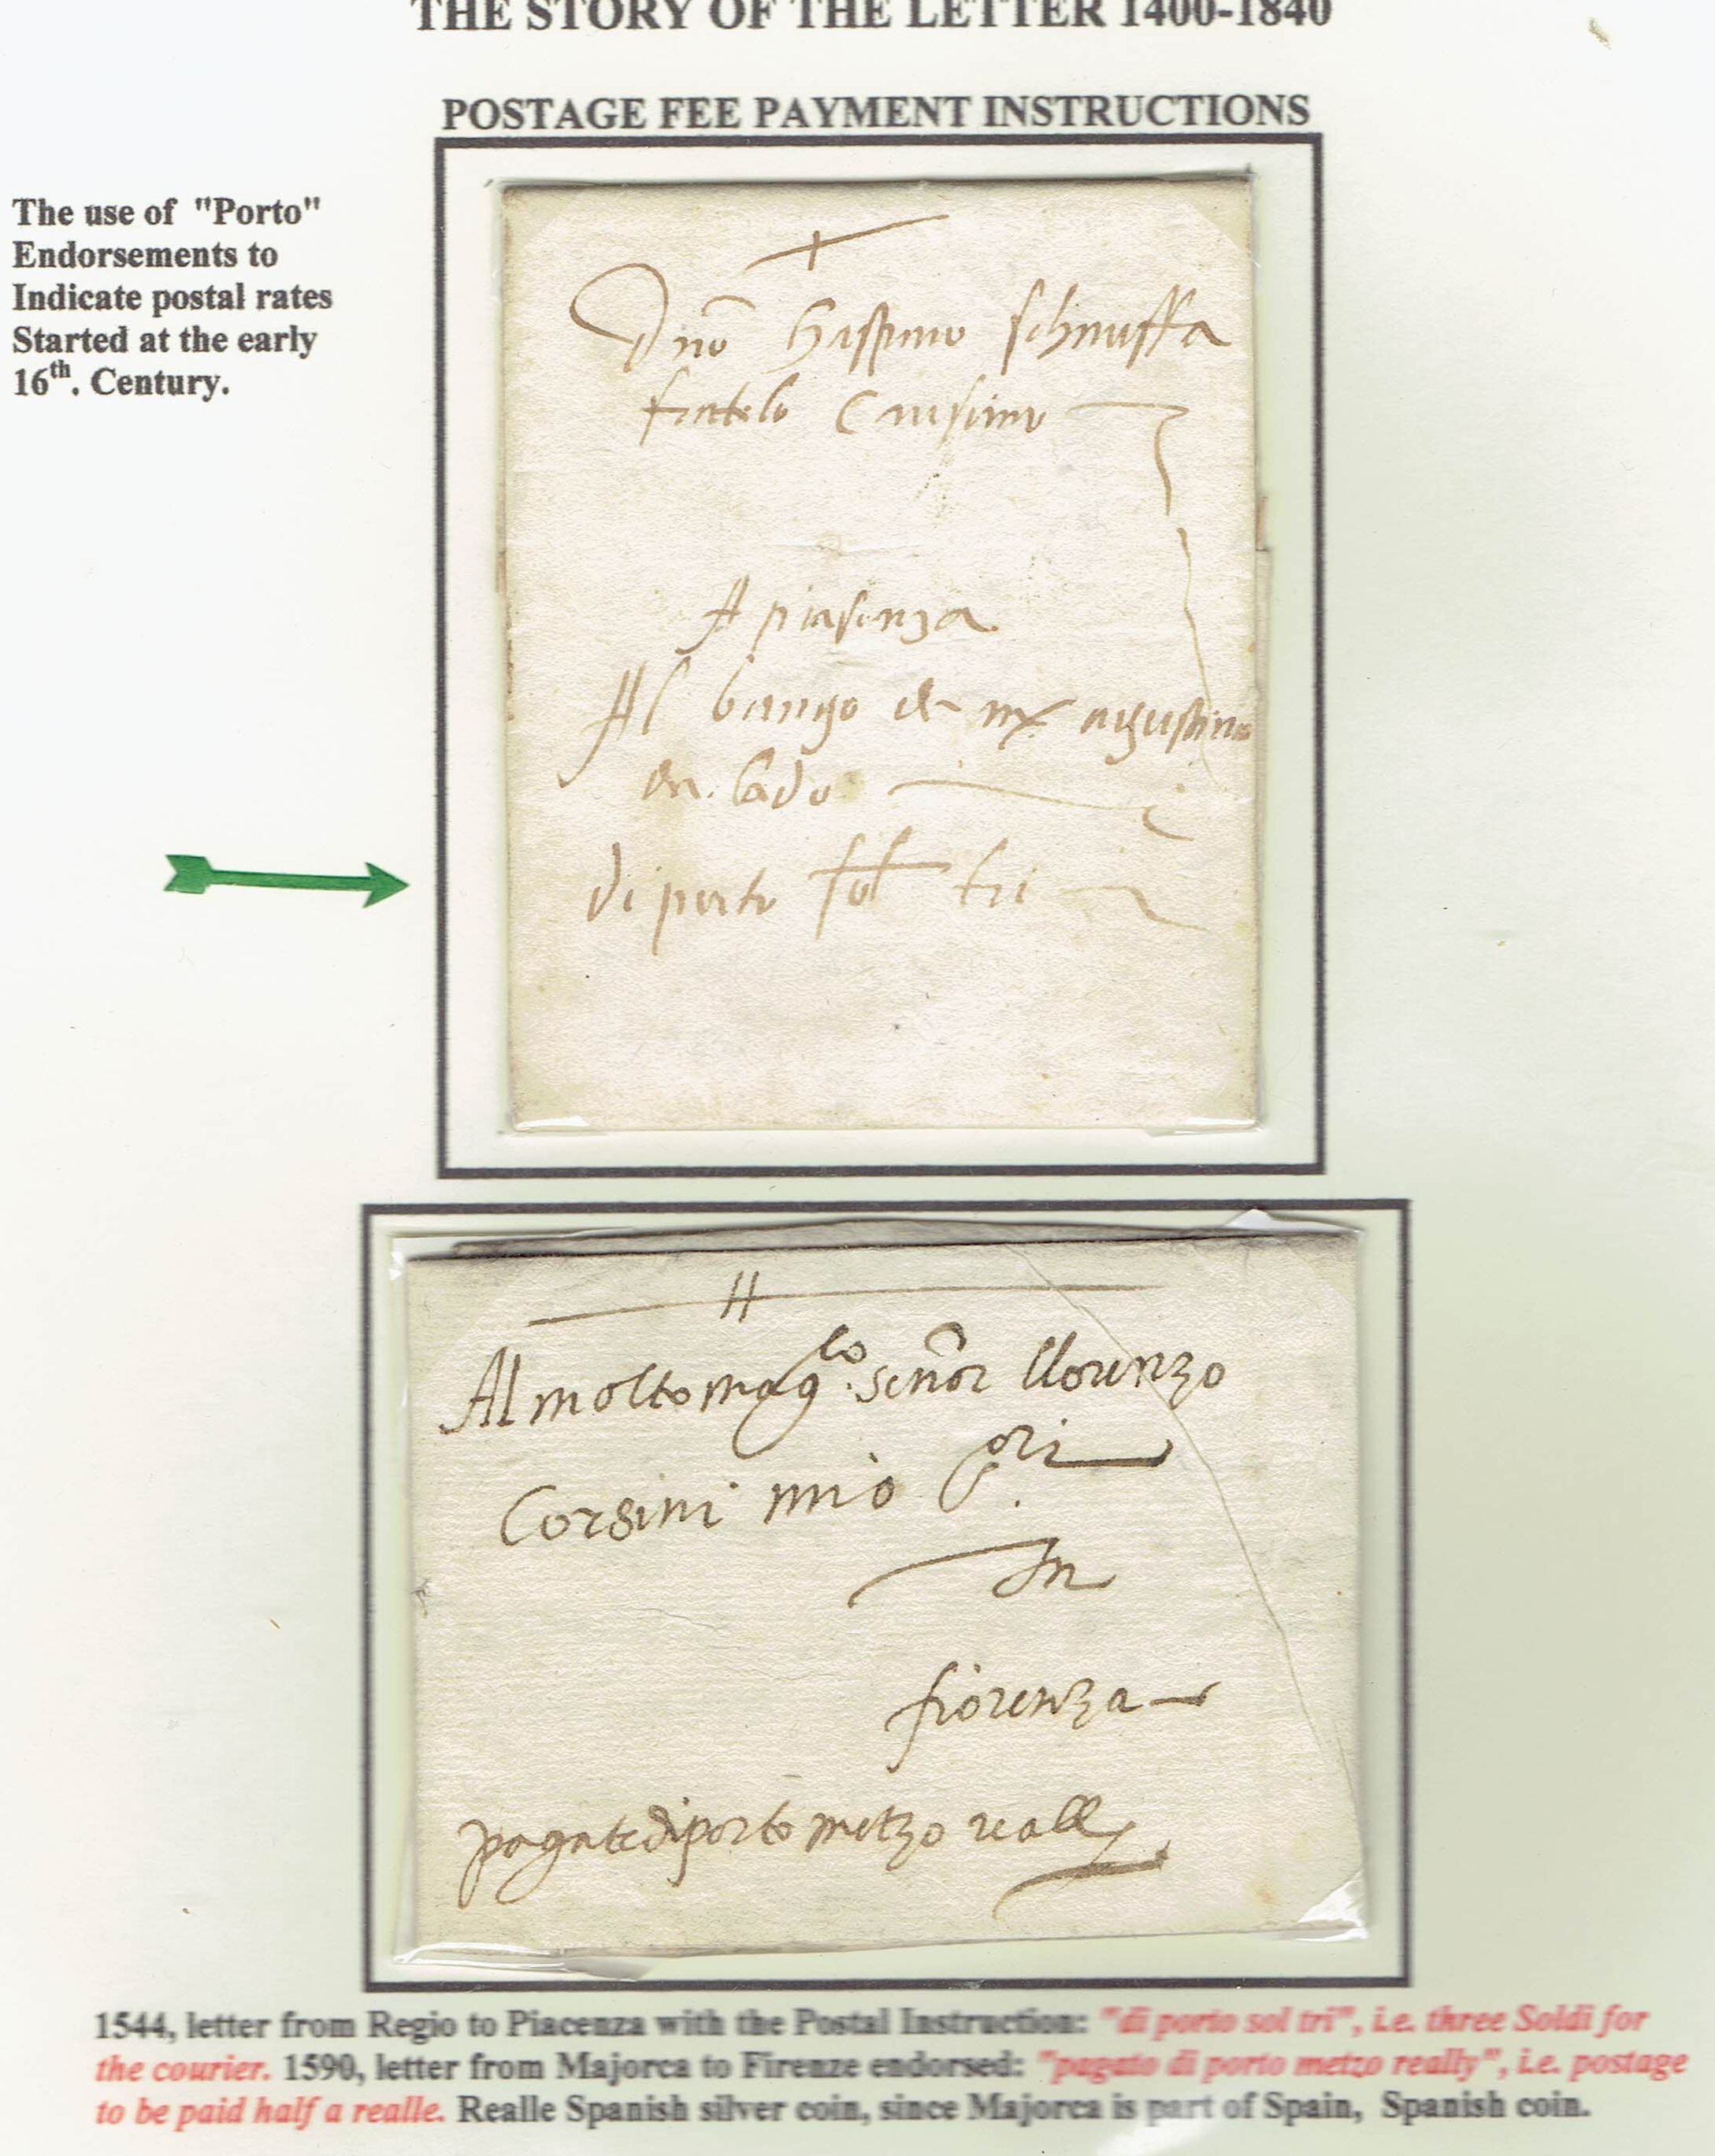 THE STORY OF THE LETTER 1400-1840
POSTAGE FEE PAYMENT INSTRUCTIONS
The use of "Porto"
Endorsements to
Indicate postal rates
Started at the early
16th. Century.
Dno
fratelo
A piasenza
Al bango de agustino
di porto sol tri
Al molto magco. señor llorenzo
Corsini mio
In
fiorenza
pagate di porto metzo really
1544, letter from Regio to Piacenza with the Postal Instruction: "di porto sol tri", i.e. three Soldi for
the courier. 1590, letter from Majorca to Firenze endorsed: "pagato di porto metzo really", i.e. postage
to be paid half a realle. Realle Spanish silver coin, since Majorca is part of Spain, Spanish coin.